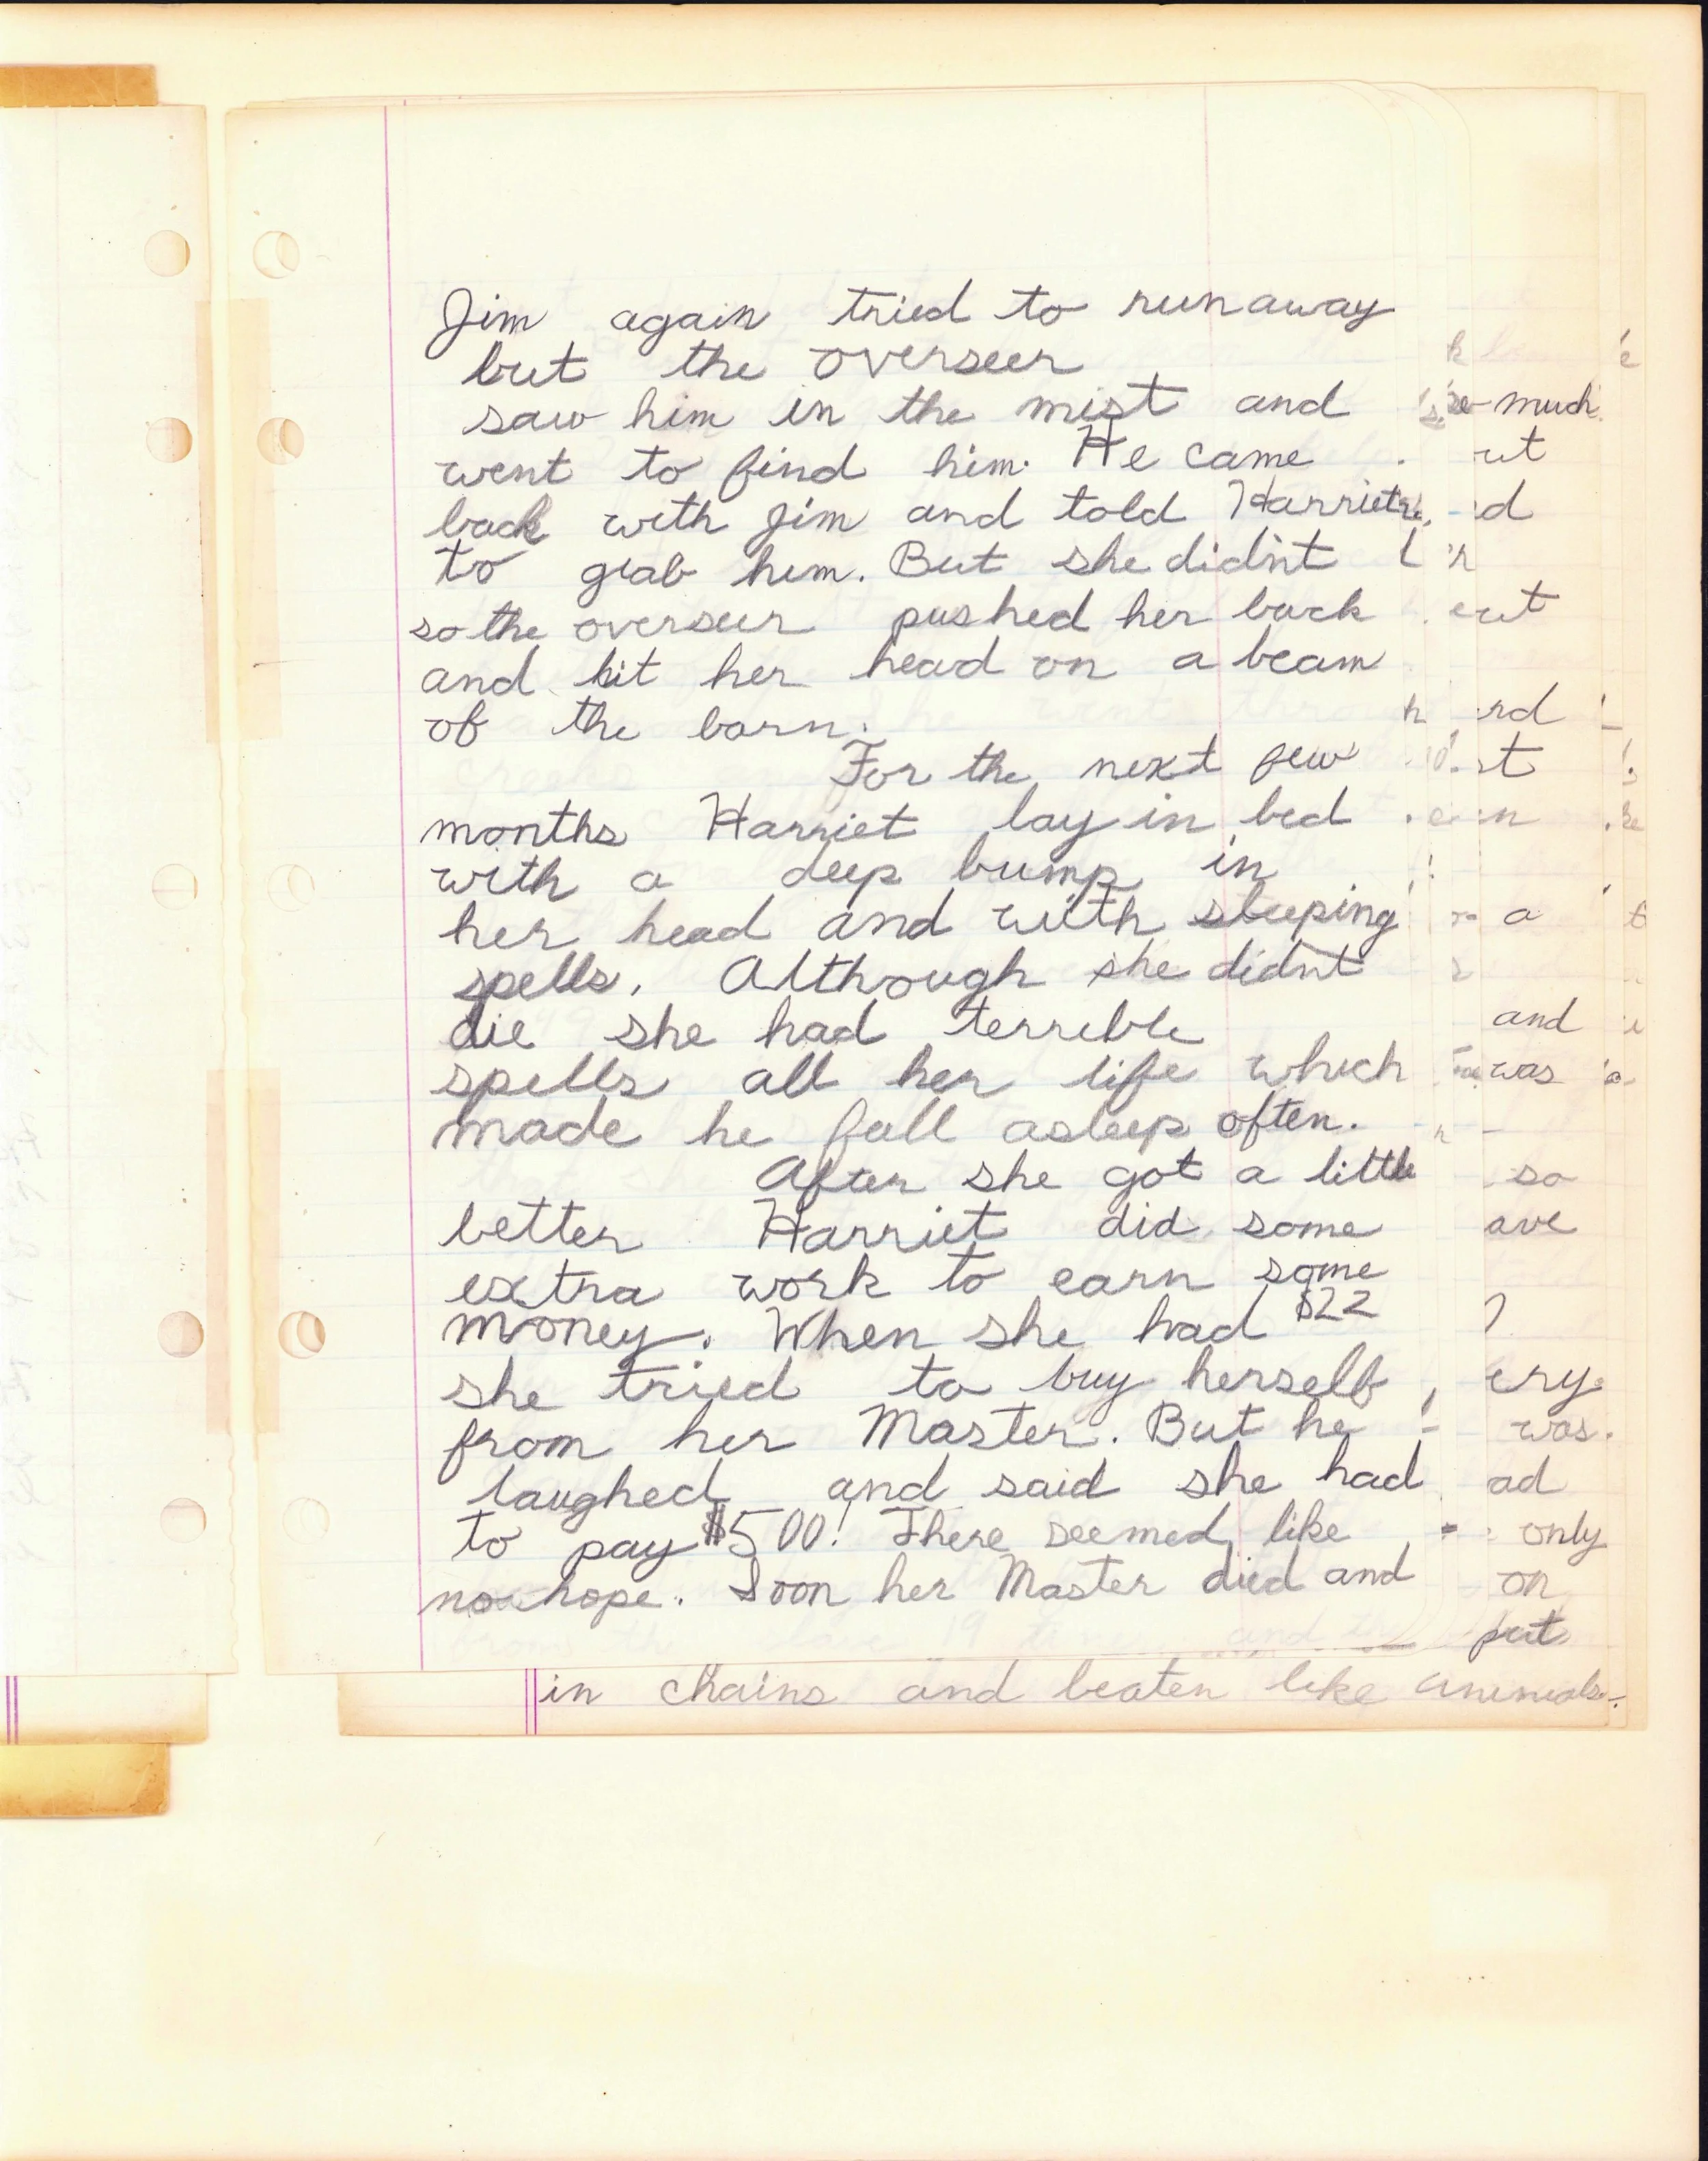 Jim again tried to runaway
but the overseer
saw him in the mist and
went to find him. He came
back with Jim and told Harriet
to grab him. But she didn't
so the overseer pushed her back
and hit her head on a beam
of the barn.
For the next few
months Harriet lay in bed
with a deep bump in
her head and with sleeping
spells. Although she didn't
die she had terrible
spells all her life which
made he fall asleep often.
After she got a little
better Harriet did some
extra work to earn some
money. When she had $22
she tried to buy herself
from her Master. But he
laughed and said she had
to pay $500! There seemed like
no hope. Soon her Master died and
in chains and beaten like animals.
much
and
was
so
was.
only
on
put